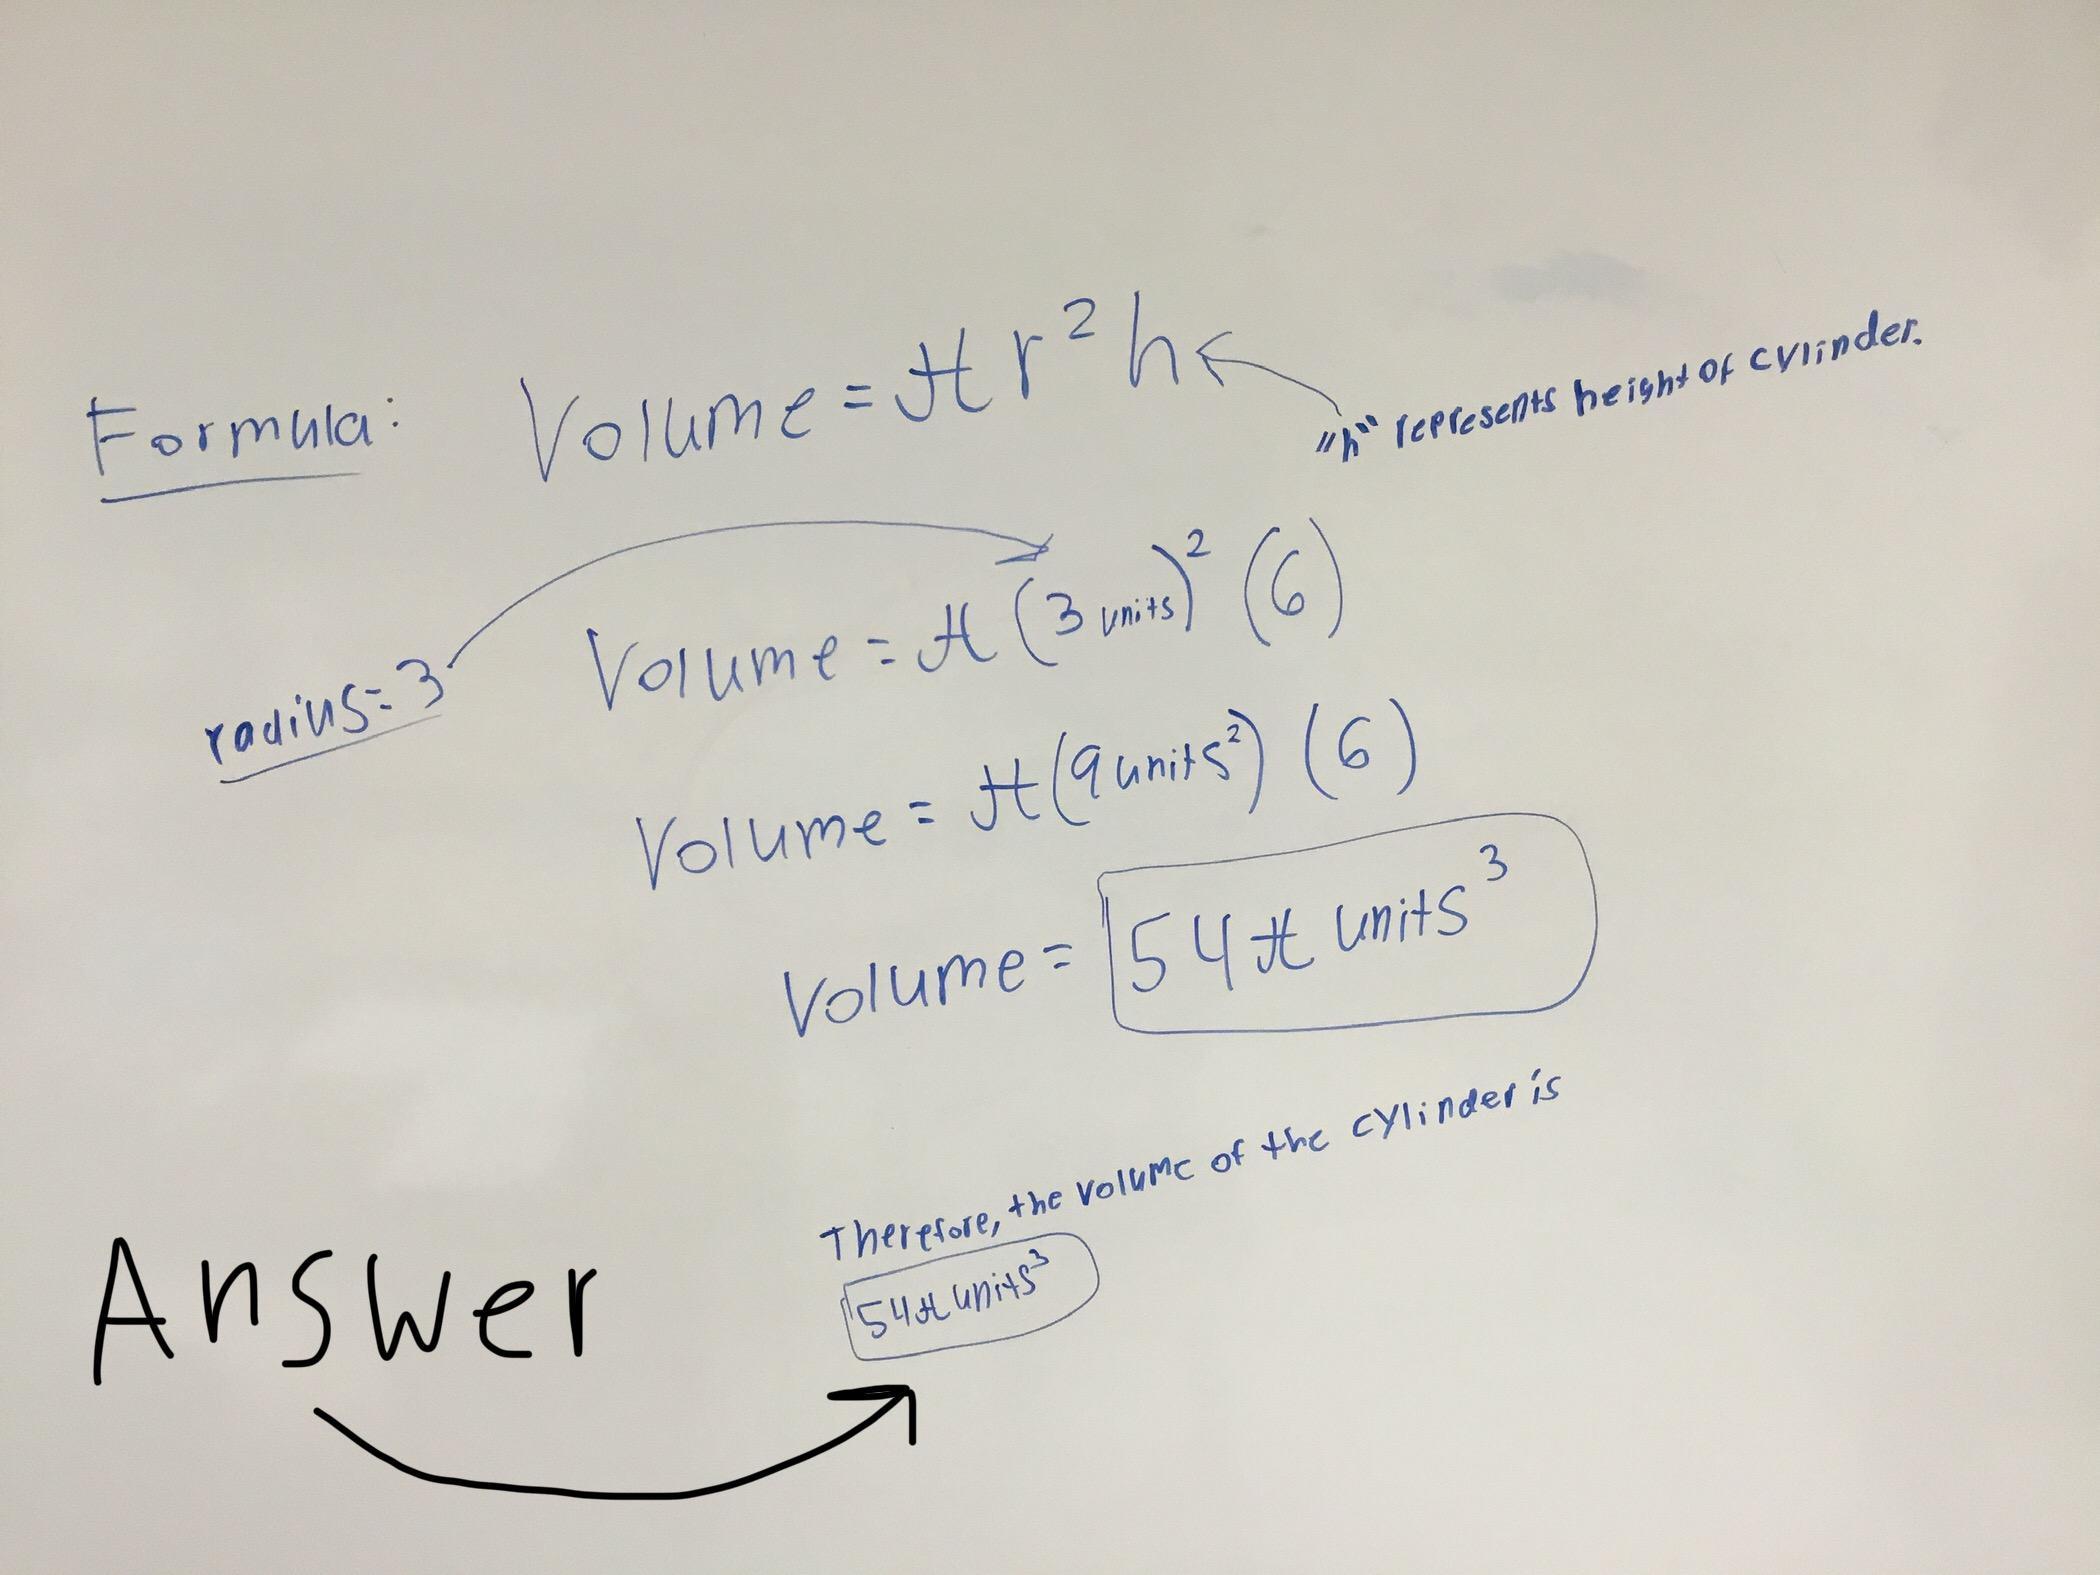 Formula: Volume = π r² h
"h" represents height of cylinder.
radius = 3
Volume = π (3 units)² (6)
Volume = π (9 units²) (6)
Volume = 54 π units³
Therefore, the volume of the cylinder is
54 π units³
Answer